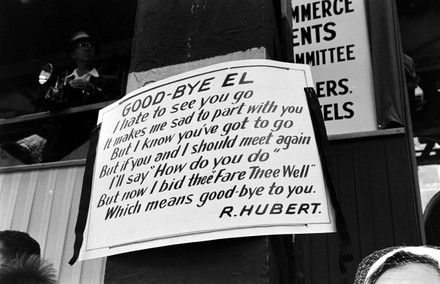 MMERCE
ENTS
MMITTEE
ERS,
ELS
GOOD-BYE EL
I hate to see you go
It makes me sad to part with you
But I know you've got to go
But if you and I should meet again
I'll say "How do you do"
But now I bid thee "Fare Thee Well"
Which means good-bye to you.
R. HUBERT.